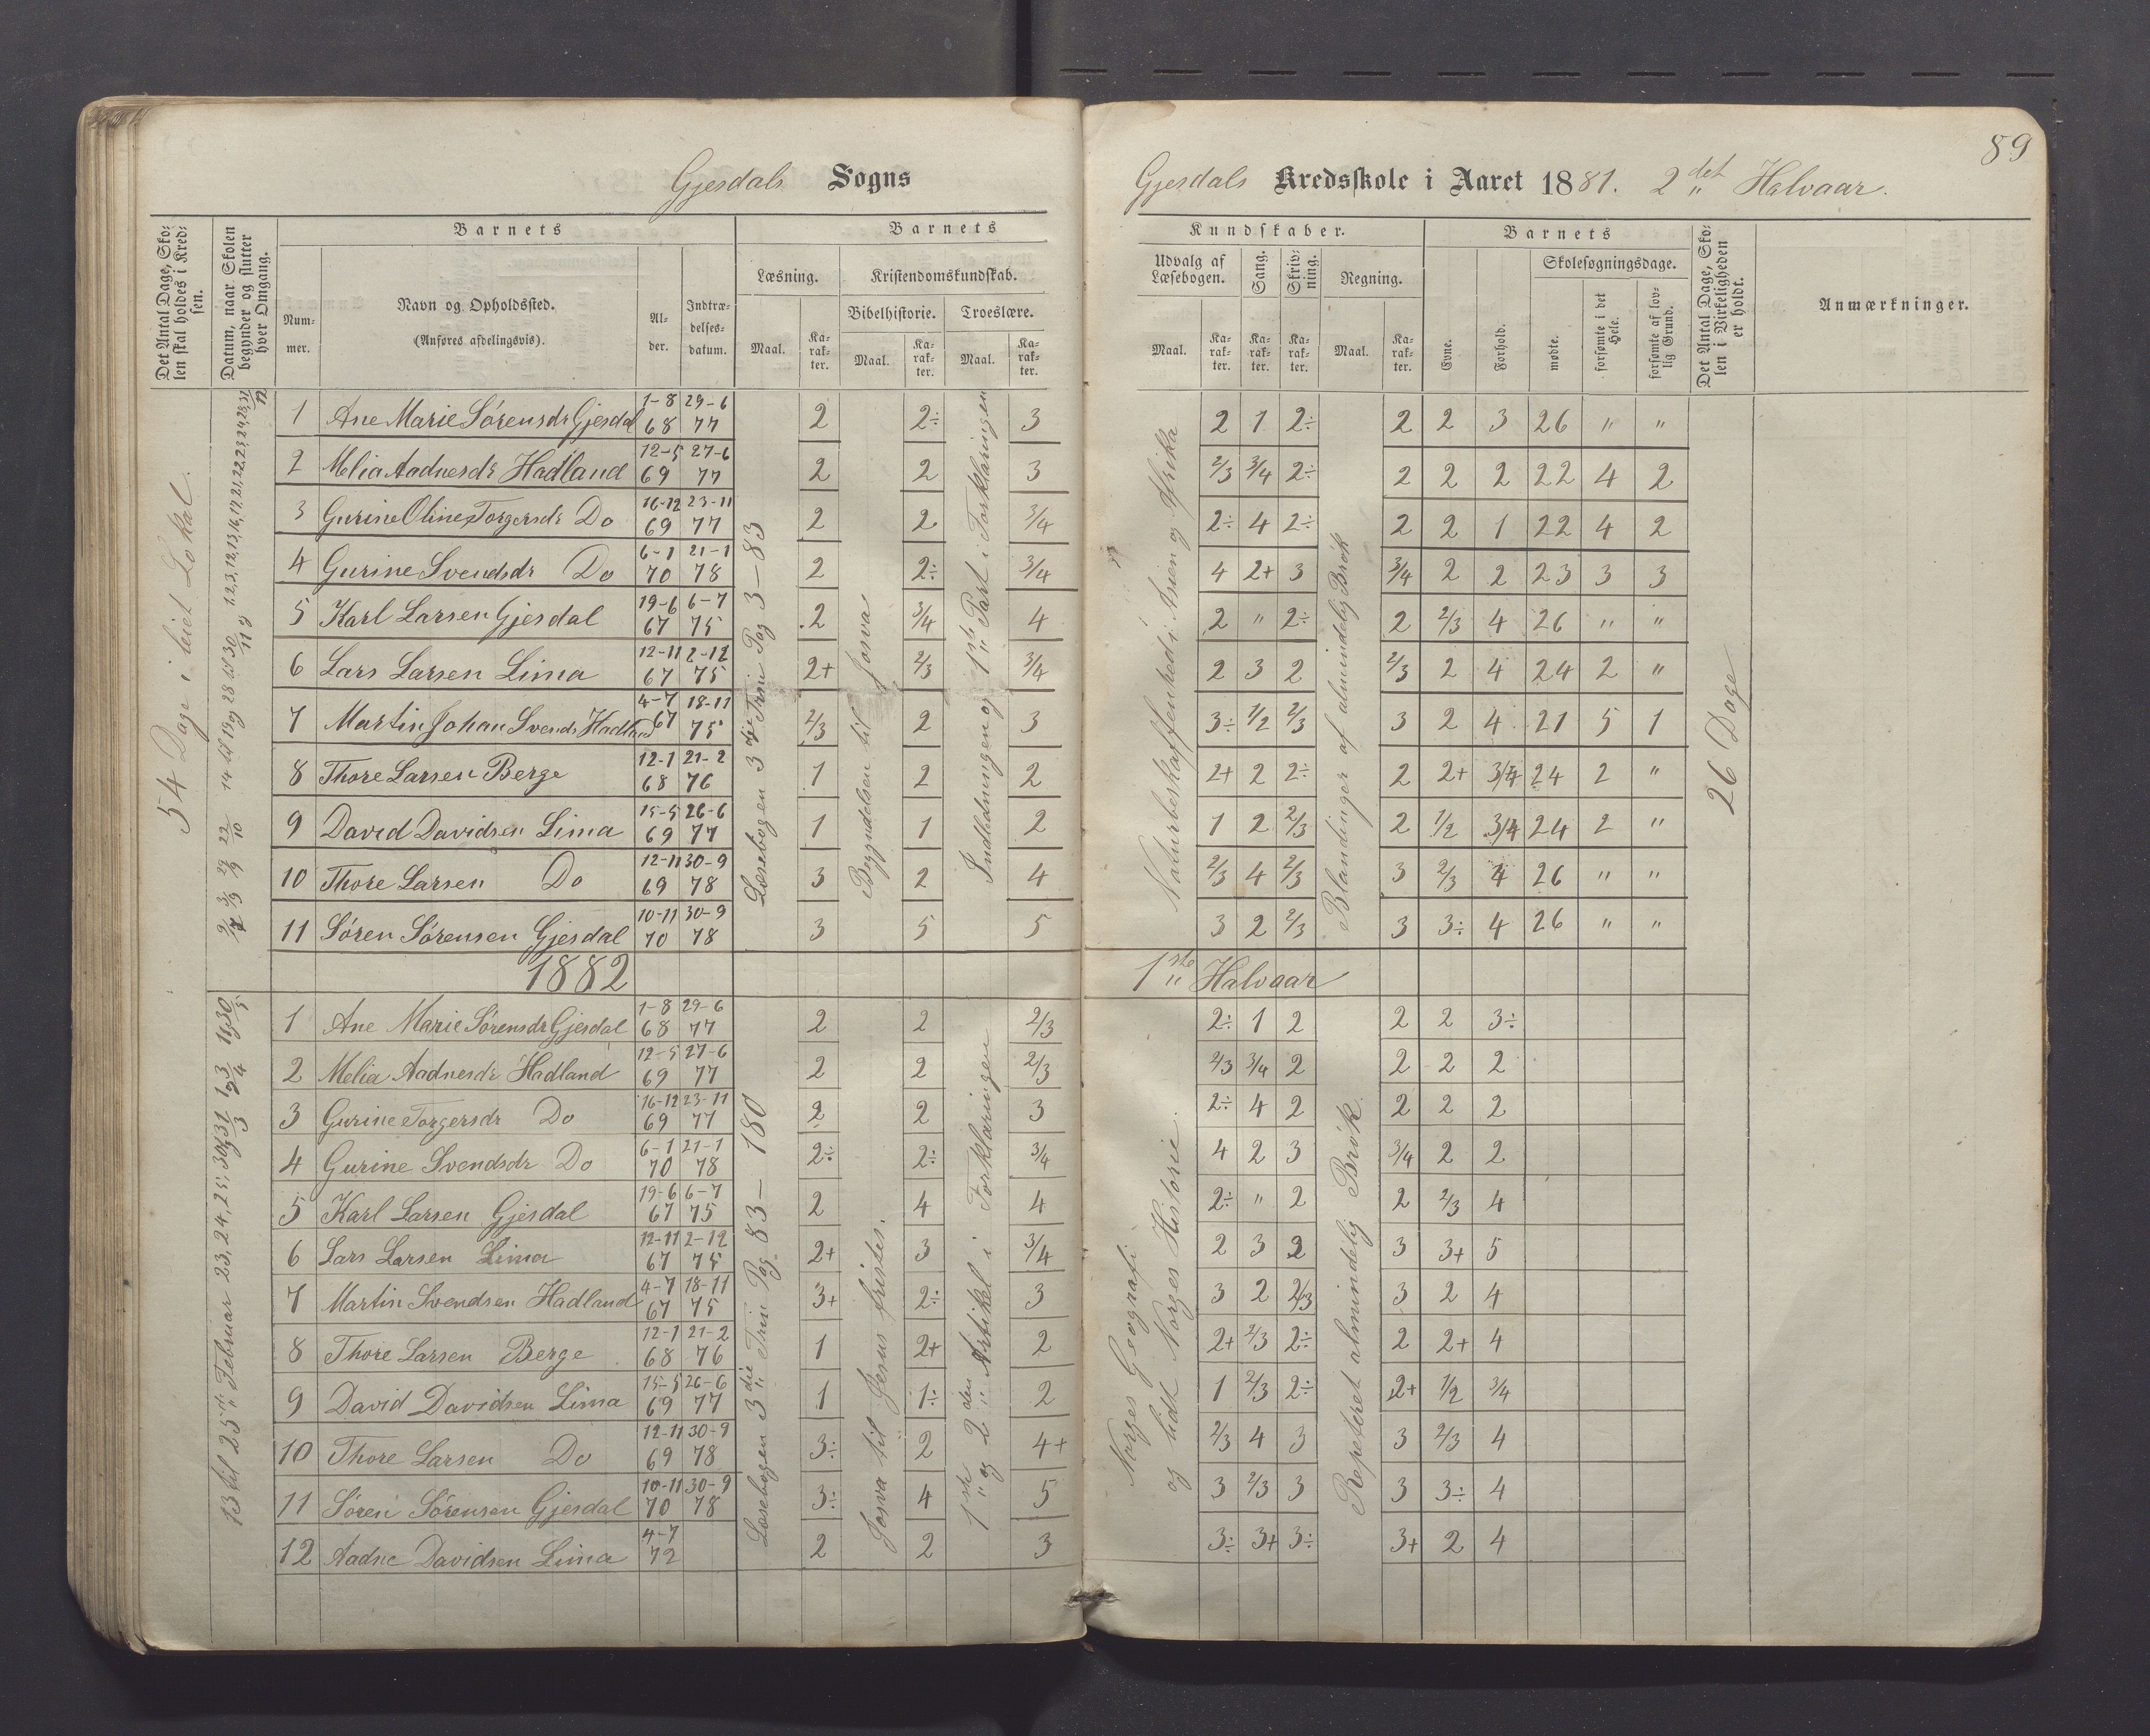 89
Gjesdals Sogns
Gjesdals Kredsskole i Aaret 1881. 2det Halvaar.
Det Antal Dage, Skolen skal holdes i Kredsen.
Datum, naar Skolen begynder og slutter hver Omgang.
Barnets
Barnets
Kundskaber.
Barnets
Det Antal Dage, Skolen i Virkeligheden er holdt.
Anmærkninger.
Num-
mer.
Navn og Opholdssted.
(Anføres afdelingsvis).
Al-
der.
Indtræ-
delses-
datum.
Læsning.
Kristendomskundskab.
Bibelhistorie.
Troeslære.
Udvalg af
Læsebogen.
Sang.
Skriv-
ning.
Regning.
Evne.
Forhold.
Skolesøgningsdage.
mødte.
forsømte i det Hele.
forsømte af lovlig Grund.
Maal. Ka-rak-ter. Maal. Ka-rak-ter. Maal. Ka-rak-ter. Maal. Ka-rak-ter. Ka-rak-ter. Ka-rak-ter. Maal. Ka-rak-ter.
54 Dage i leiet Lokal.
Læsebogen 3die Trin Pag 3-83
Begyndelsen til Josva
Indledningen og 1ste Part i Forklaringen
Naturbeskaffenhed i Asien og Afrika
Blandinger af almindelig Brøk
26 Dage
1 Ane Marie Sørensdr Gjesdal 1-8 68 29-6 77 2 2÷ 3 2 1 2÷ 2 2 3 26 " "
2 Melia Aadnesdr Hadland 12-5 69 27-6 77 2 2 3 2/3 3/4 2÷ 2 2 2 22 4 2
3 Gurine Oline Torgersdr Do 16-12 69 23-11 77 2 2 3/4 2÷ 4 2÷ 2 2 1 22 4 2
4 Gurine Svendsdr Do 6-1 70 21-1 78 2 2÷ 3/4 4 2+ 3 3/4 2 2 23 3 3
5 Karl Larsen Gjesdal 19-6 67 6-7 75 2 3/4 4 2 " 2÷ 2 2/3 4 26 " "
6 Lars Larsen Lima 12-11 67 2-12 75 2+ 2/3 3/4 2 3 2 2/3 2 4 24 2 "
7 Martin Johan Svends Hadland 4-7 67 18-11 75 2/3 2 3 3÷ 1/2 2/3 3 2 4 21 5 1
8 Thore Larsen Berge 12-1 68 21-2 76 1 2 2 2+ 2 2÷ 2 2+ 3/4 24 2 "
9 David Davidsen Lima 15-5 69 26-6 77 1 1 2 1 2 2/3 2 1/2 3/4 24 2 "
10 Thore Larsen Do 12-11 69 30-9 78 3 2 4 2/3 4 2/3 3 2/3 4 26 " "
11 Søren Sørensen Gjesdal 10-11 70 30-9 78 3 5 5 3 2 2/3 3 3÷ 4 26 " "
1882
1ste Halvaar
13 til 25de Februar 23, 24, 25, 30 og 31/3 1 og 3/4 1 og 30/5
Læsebogen 3die Trin Pag 83-180
Josva til Jesus fristes.
1ste og 2den Artikel i Forklaringen
Norges Geografi
og lidt Norges Historie.
Repeteret almindelig Brøk.
1 Ane Marie Sørensdr Gjesdal 1-8 68 29-6 77 2 2 2/3 2÷ 1 2 2 2 3÷
2 Melia Aadnesdr Hadland 12-5 69 27-6 77 2 2 2/3 2/3 3/4 2 2 2 2
3 Gurine Torgersdr Do 16-12 69 23-11 77 2 2 3 2÷ 4 2 2 2 2
4 Gurine Svendsdr Do 6-1 70 21-1 78 2÷ 2÷ 3/4 4 2 3 3/4 2 2
5 Karl Larsen Gjesdal 19-6 67 6-7 75 2 4 4 2÷ " 2 2 2/3 4
6 Lars Larsen Lima 12-11 67 2-12 75 2+ 3 3/4 2 3 2 3 3+ 5
7 Martin Svendsen Hadland 4-7 67 18-11 75 3+ 2÷ 3 3 2 2/3 3 2 4
8 Thore Larsen Berge 12-1 68 21-2 76 1 2+ 2 2+ 2/3 2÷ 2 2+ 4
9 David Davidsen Lima 15-5 69 26-6 77 1 1÷ 2 1 2/3 2÷ 2+ 1/2 3/4
10 Thore Larsen Do 12-11 69 30-9 78 3÷ 2 4+ 2/3 4 3 3 2/3 4
11 Søren Sørensen Gjesdal 10-11 70 30-9 78 3÷ 4 5 3 2/3 3 3 3÷ 4
12 Aadne Davidsen Lima 4-7 72 2 2 3 3÷ 3+ 3÷ 3+ 2 4